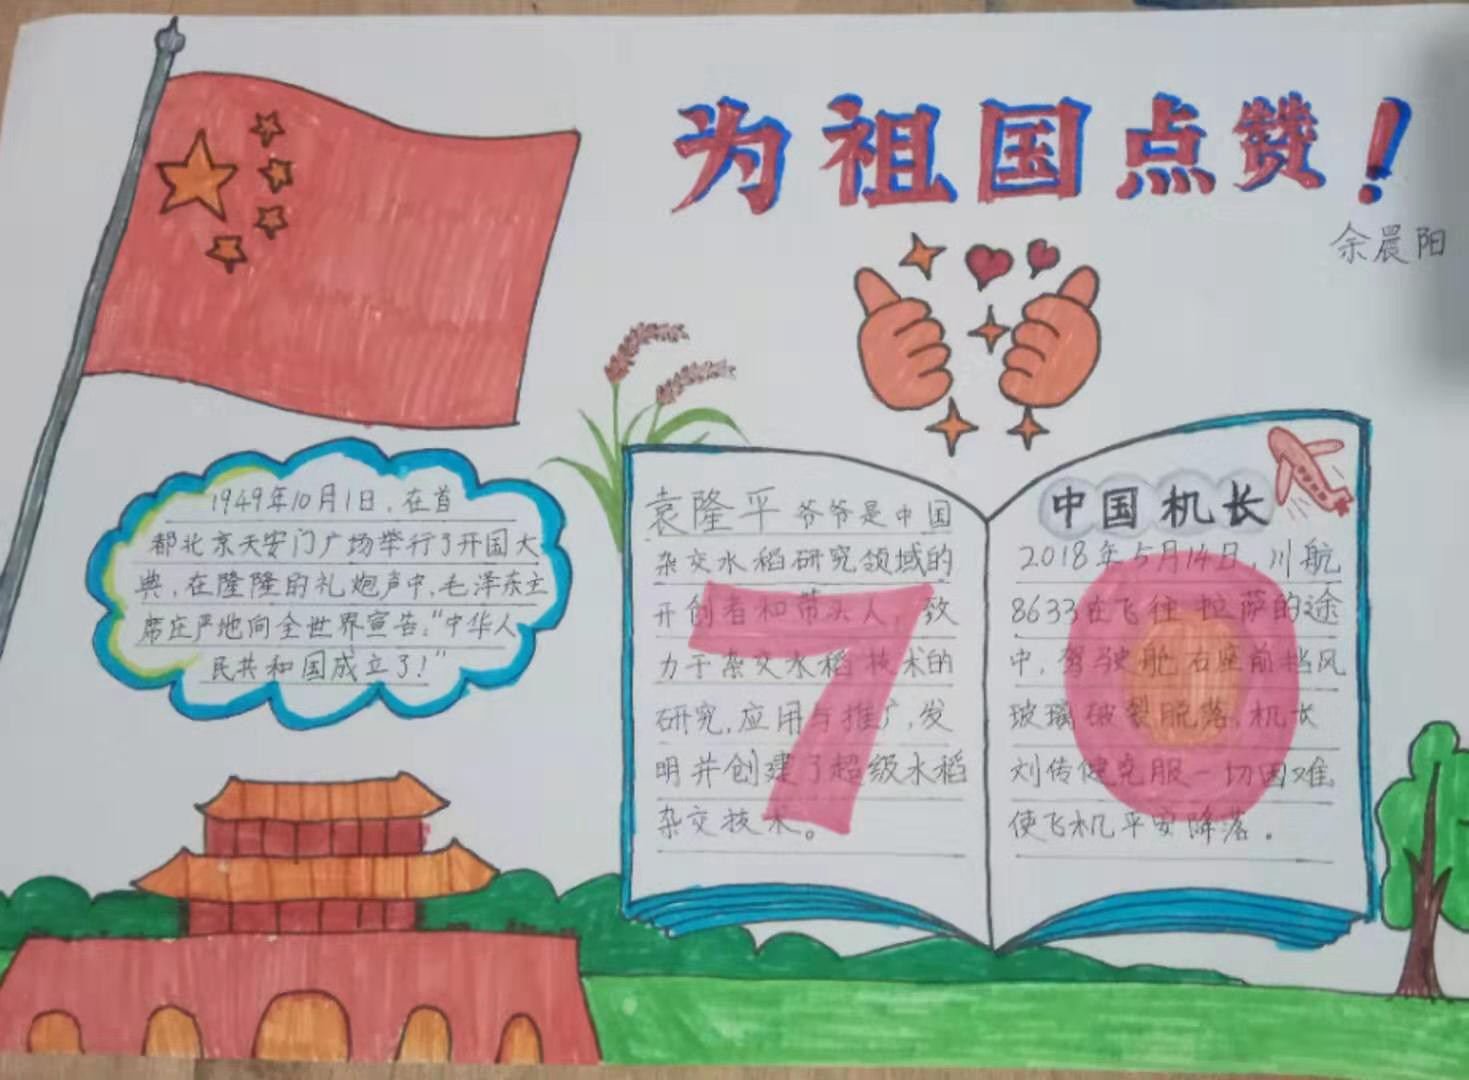 为祖国点赞!
余晨阳
1949年10月1日,在首
都北京天安门广场举行了开国大
典,在隆隆的礼炮声中,毛泽东主
席庄严地向全世界宣告:“中华人
民共和国成立了!”
袁隆平爷爷是中国
杂交水稻研究领域的
开创者和带头人,致
力于杂交水稻技术的
研究,应用与推广,发
明并创建了超级水稻
杂交技术。
中国机长
2018年5月14日,川航
8633在飞往拉萨的途
中,驾驶舱右座前挡风
玻璃破裂脱落,机长
刘传健克服一切困难
使飞机平安降落。
70